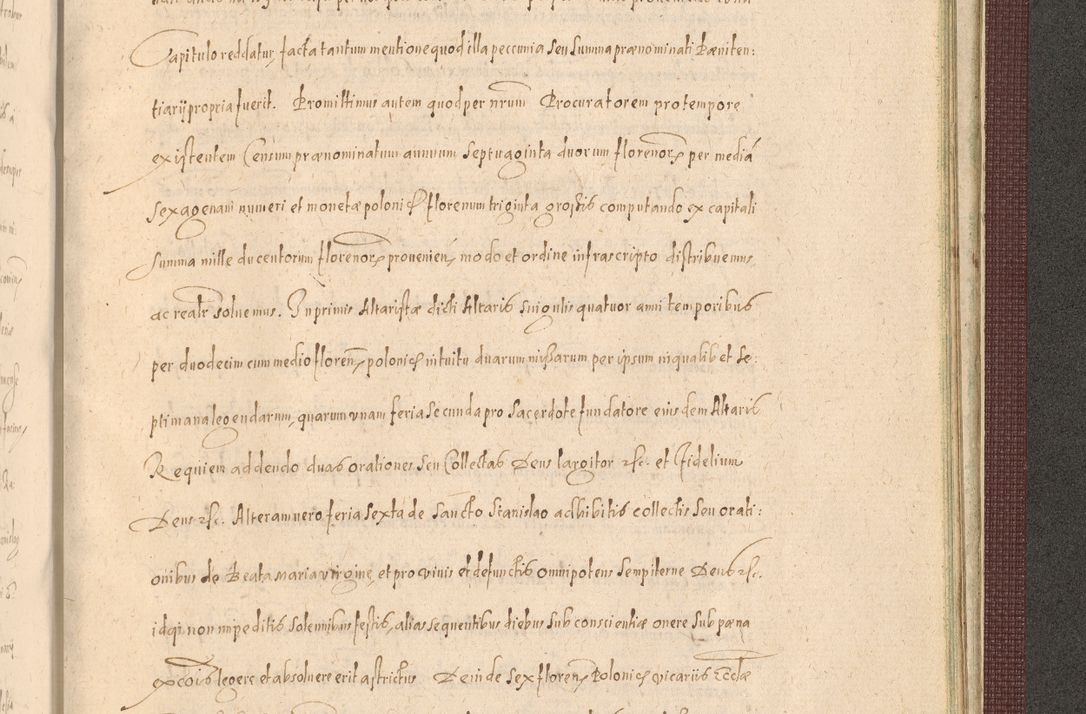 Capitulo reddatur, facta tantum mentione quod illa peccunia seu summa prænominati Pæniten:
tiarij propria fuerit. Promittimus autem quod per nrum Procuratorem pro tempore
existentem Censum prænominatum annuum Septuaginta duorum florenor per mediã
sexagenam numeri et monetæ polonic florenum triginta grossis computando ex capitali
summa mille ducentorum florenor provenien, modo et ordine infrascripto distribuemus,
ac realr solvemus. In primis Altaristæ dicti Altaris singulis quatuor anni temporibus
per duodecim cum medio floren polonic intuitu duarum missarum per ipsum in qualib et Se:
ptimana legendarum, quarum unam feria secunda pro Sacerdote fundatore eiusdem Altaris
Requiem addendo duas orationes seu Collectas Deus largitor etc. et Fidelium
Deus etc. Alteram vero feria Sexta de Sancto Stanislao adhibitis collectis seu orati:
onibus de Beata Maria virgine, et pro vivis et defunctis omnipotens sempiterne Deus etc.
idqi non impeditis solennibus festis, alias sequentibus diebus sub conscientiæ onere sub pæna
excõis legere et absolvere erit astrictus Deinde Sex floren Polonic vicariis Ecclæ